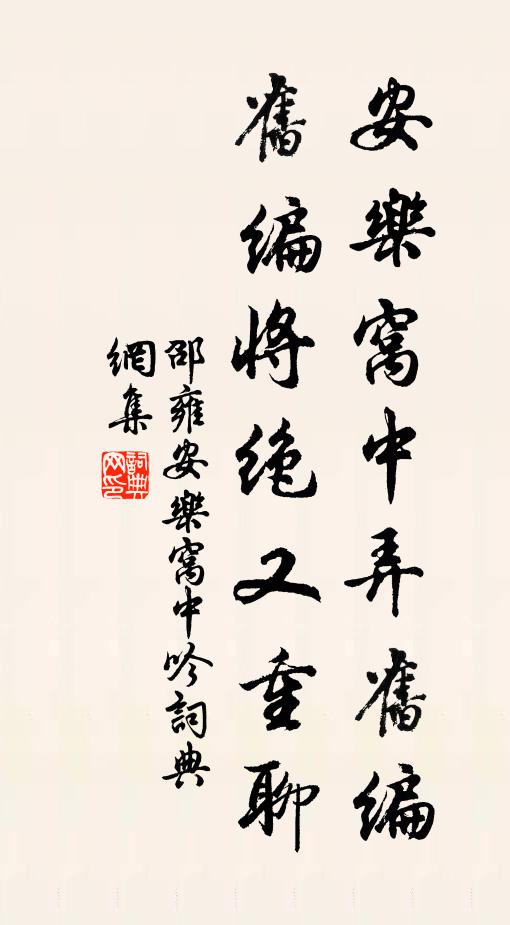 安樂窩中弄舊編
舊編將絕又重聊
邵雍安樂窩中吟詞典
網集
詞典網印